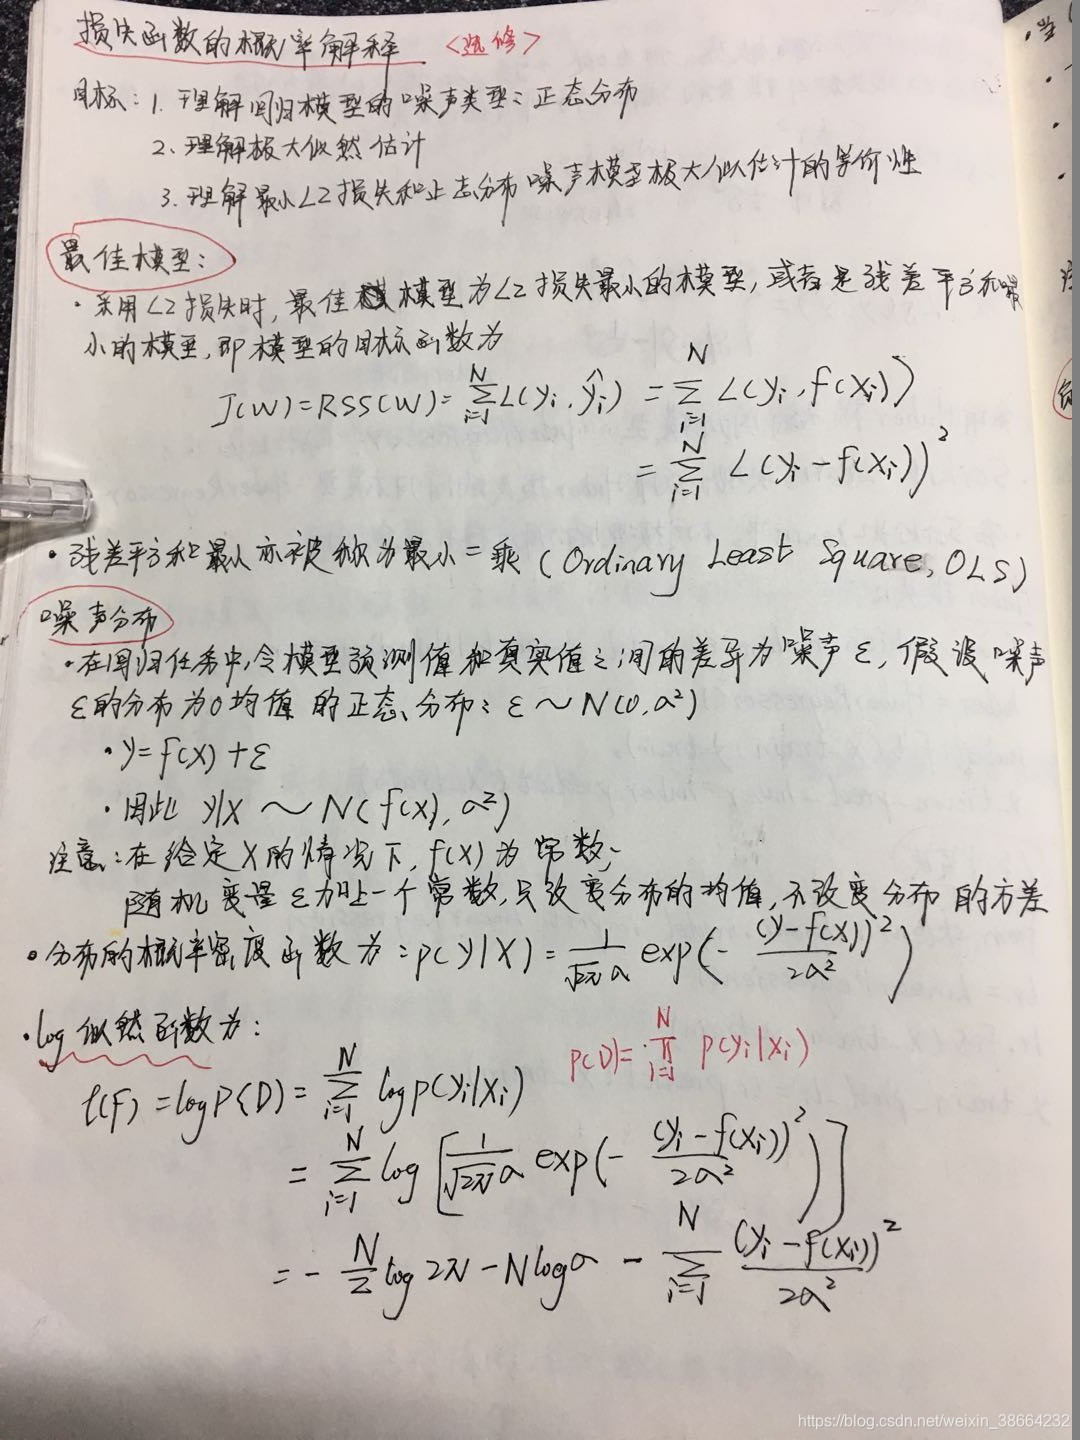 损失函数的概率解释 <选修>
目标:1. 理解回归模型的噪声类型:正态分布
2. 理解极大似然估计
3. 理解最小L2损失和正态分布噪声模型极大似估计的等价性
最佳模型:
·采用L2损失时,最佳模型为L2损失最小的模型,或者是残差平方和最
小的模型,即模型的目标函数为
J(W)=RSS(W)=∑_{i=1}^{N} L(yi,ŷi) = ∑_{i=1}^{N} L(yi,f(xi))
= ∑_{i=1}^{N} L(yi-f(xi))²
·残差平方和最小亦被称为最小二乘(Ordinary Least Square, OLS)
噪声分布
·在回归任务中,令模型预测值和真实值之间的差异为噪声ε,假设噪声
ε的分布为0均值的正态分布:ε~N(0,σ²)
·y=f(x)+ε
·因此 y|x ~ N(f(x),σ²)
注意:在给定x的情况下,f(x)为常数;
随机变量ε加上一个常数,只改变分布的均值,不改变分布的方差
·分布的概率密度函数为:p(y|x)=1/(√2π σ) exp(-(y-f(x))²/2σ²)
·log似然函数为:
P(D)=∏_{i=1}^{N} p(yi|xi)
ℓ(f)=logP(D)=∑_{i=1}^{N} logp(yi|xi)
=∑_{i=1}^{N} log[1/(√2π σ) exp(-(yi-f(xi))²/2σ²)]
=-N/2 log2π-Nlogσ-∑_{i=1}^{N} (yi-f(xi))²/2σ²
https://blog.csdn.net/weixin_38664232